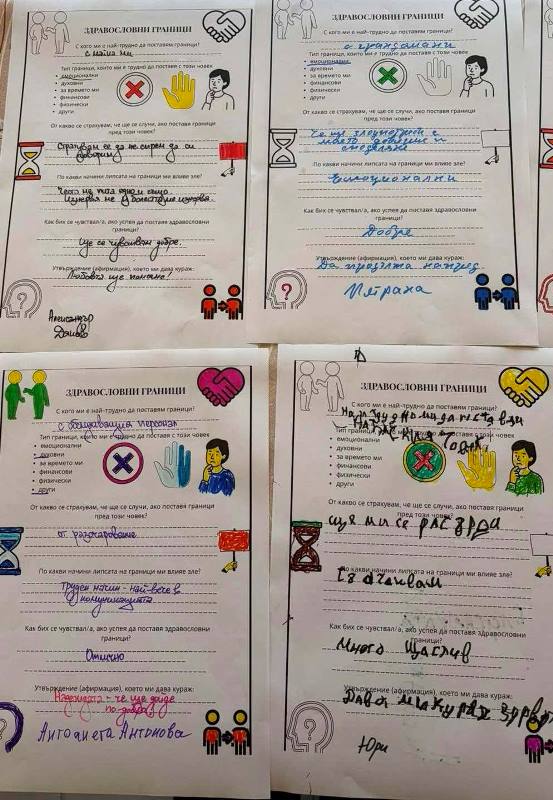 ЗДРАВОСЛОВНИ ГРАНИЦИ
С кого ми е най-трудно да поставям граници?
с майка ми
Тип граници, които ми е трудно да поставя с този човек
емоционални
духовни
за времето ми
финансови
физически
други
От какво се страхувам, че ще се случи, ако поставя граници
пред този човек?
Страхувам се да не спрем да си
говорим
По какви начини липсата на граници ми влияе зле?
Често ме пита едно и също.
Как бих се чувствал/а, ако успея да поставя здравословни
граници?
Ще се чувствам добре.
Утвърждение (афирмация), което ми дава кураж:
Любовта ще помогне!
Александър
ЗДРАВОСЛОВНИ ГРАНИЦИ
С кого ми е най-трудно да поставям граници?
с
Тип граници, които ми е трудно да поставя с този човек
емоционални
духовни
за времето ми
финансови
физически
други
От какво се страхувам, че ще се случи, ако поставя граници
пред този човек?
Че ще злоупотреби с
моето доверие и
споделяне
По какви начини липсата на граници ми влияе зле?
Емоционални
Как бих се чувствал/а, ако успея да поставя здравословни
граници?
Добре
Утвърждение (афирмация), което ми дава кураж:
Да продължа напред
ЗДРАВОСЛОВНИ ГРАНИЦИ
С кого ми е най-трудно да поставям граници?
с обслужващия персонал
Тип граници, които ми е трудно да поставя с този човек
емоционални
духовни
за времето ми
финансови
физически
други
От какво се страхувам, че ще се случи, ако поставя граници
пред този човек?
от разочарование
По какви начини липсата на граници ми влияе зле?
Труден начин - най-вече в
комуникацията
Как бих се чувствал/а, ако успея да поставя здравословни
граници?
Отлично
Утвърждение (афирмация), което ми дава кураж:
Надеждата - че ще дойде
по-добро!
Антоанета Антонова
ЗДРАВОСЛОВНИ ГРАНИЦИ
С кого ми е най-трудно да поставям граници?
Тип граници, които ми е трудно да поставя с този човек
емоционални
духовни
за времето ми
финансови
физически
други
От какво се страхувам, че ще се случи, ако поставя граници
пред този човек?
ще ми се разсърди
По какви начини липсата на граници ми влияе зле?
Как бих се чувствал/а, ако успея да поставя здравословни
граници?
Много щаслив
Утвърждение (афирмация), което ми дава кураж:
Юри